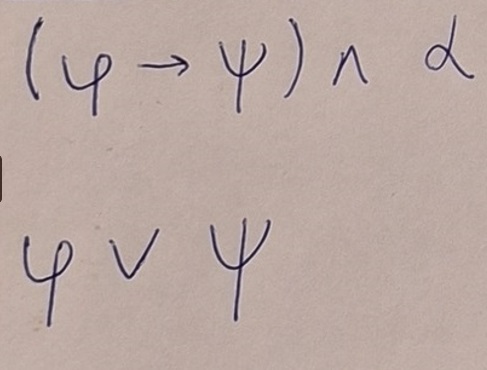 (φ → ψ) ∧ α
φ ∨ ψ